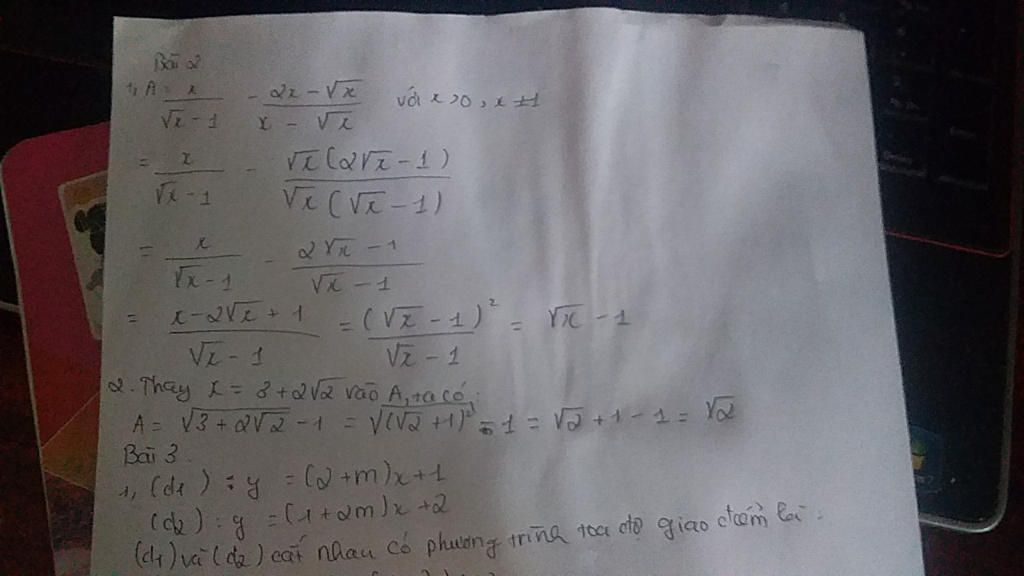 Bài 2
1, A = x/(√x - 1) - (2x - √x)/(x - √x) với x > 0, x ≠ 1
= x/(√x - 1) - √x(2√x - 1)/(√x(√x - 1))
= x/(√x - 1) - (2√x - 1)/(√x - 1)
= (x - 2√x + 1)/(√x - 1) = (√x - 1)²/(√x - 1) = √x - 1
2. Thay x = 3 + 2√2 vào A, ta có:
A = √(3 + 2√2) - 1 = √((√2 + 1)²) - 1 = √2 + 1 - 1 = √2
Bài 3
1, (d1) : y = (2 + m)x + 1
(d2) : y = (1 + 2m)x + 2
(d1) và (d2) cắt nhau có phương trình toạ độ giao điểm là: